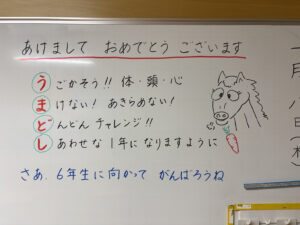 あけまして おめでとう ございます
うごかそう!! 体・頭・心
まけない! あきらめない!
どんどん チャレンジ!!
しあわせな 1年に なりますように
さあ、6年生に向かって がんばろうね
一月八日